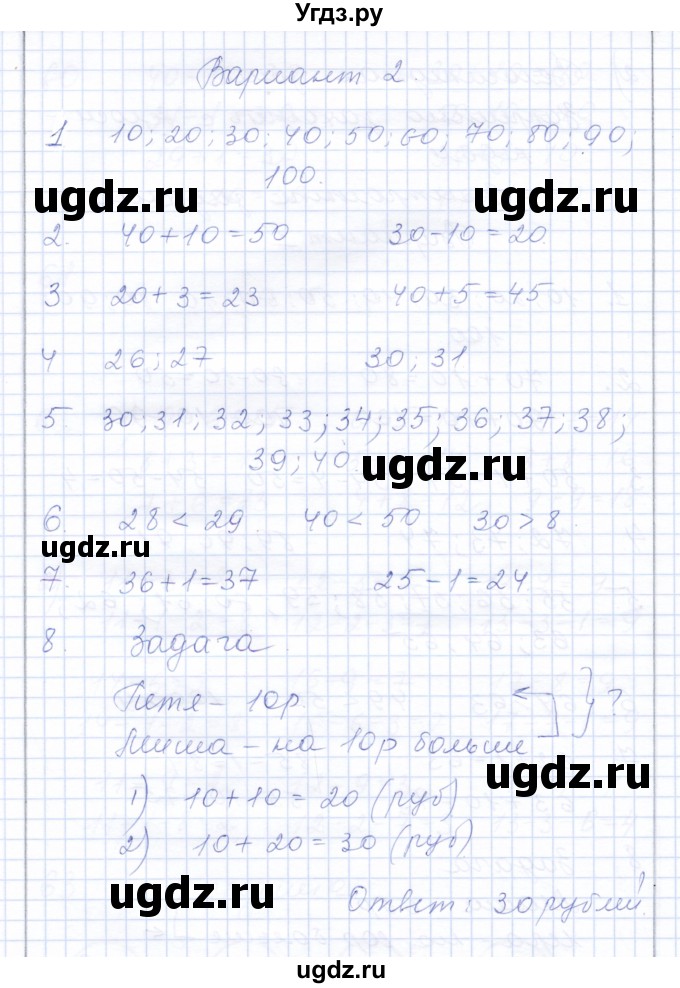 Угдз.ру
Вариант 2.
1 10; 20; 30; 40; 50; 60; 70; 80; 90;
100.
ugdz.ru ugdz.ru
2. 40+10=50 30-10=20.
3 20+3=23 40+5=45
4 26; 27 30; 31
5. 30; 31; 32; 33; 34; 35; 36; 37; 38;
39; 40.
ugdz.ru
6. 28 < 29. 40 < 50 30 > 8.
ugdz.ru
7. 36+1=37 25-1=24
8. Задача.
Петя - 10р. ?
Миша - на 10р больше
ugdz.ru
1) 10+10=20 (руб)
2) 10+20=30 (руб)
ugdz.ru
Ответ: 30 рублей.
ugdz.ru